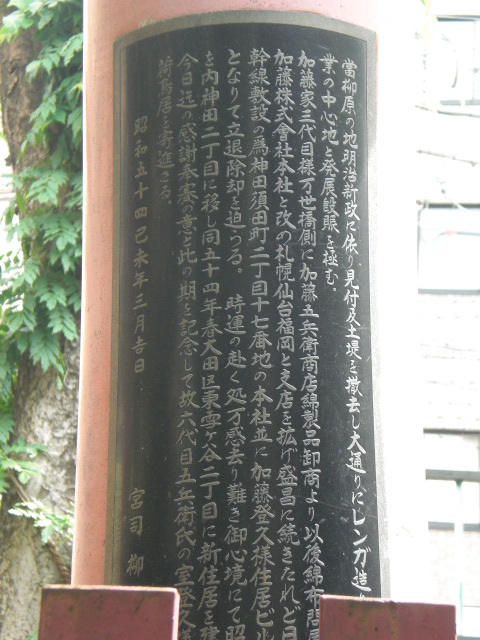 當柳原の地明治新政に依り見付及土堤を撤去し大通りにレンガ造り
業の中心地と発展殷賑を極む。
加藤家三代目様万世橋側に加藤五兵衛商店綿製品卸商より以後綿布問
加藤株式會社本社と改め札幌仙台福岡と支店を拡げ盛昌に続きたれど日
幹線敷設の為神田須田町二丁目十七番地の本社並に加藤登久様住居ビル
となりて立退除却を迫つる。 時運の赴く処万感去り難き御心境にて昭
を内神田二丁目に移し同五十四年春大田区東雪ヶ谷二丁目に新住居を建
今日迄の感謝奉賽の意と此の期を記念して故六代目五兵衛氏の室登久様
荷鳥居を寄進さる。
昭和五十四己未年三月吉日 宮司 柳